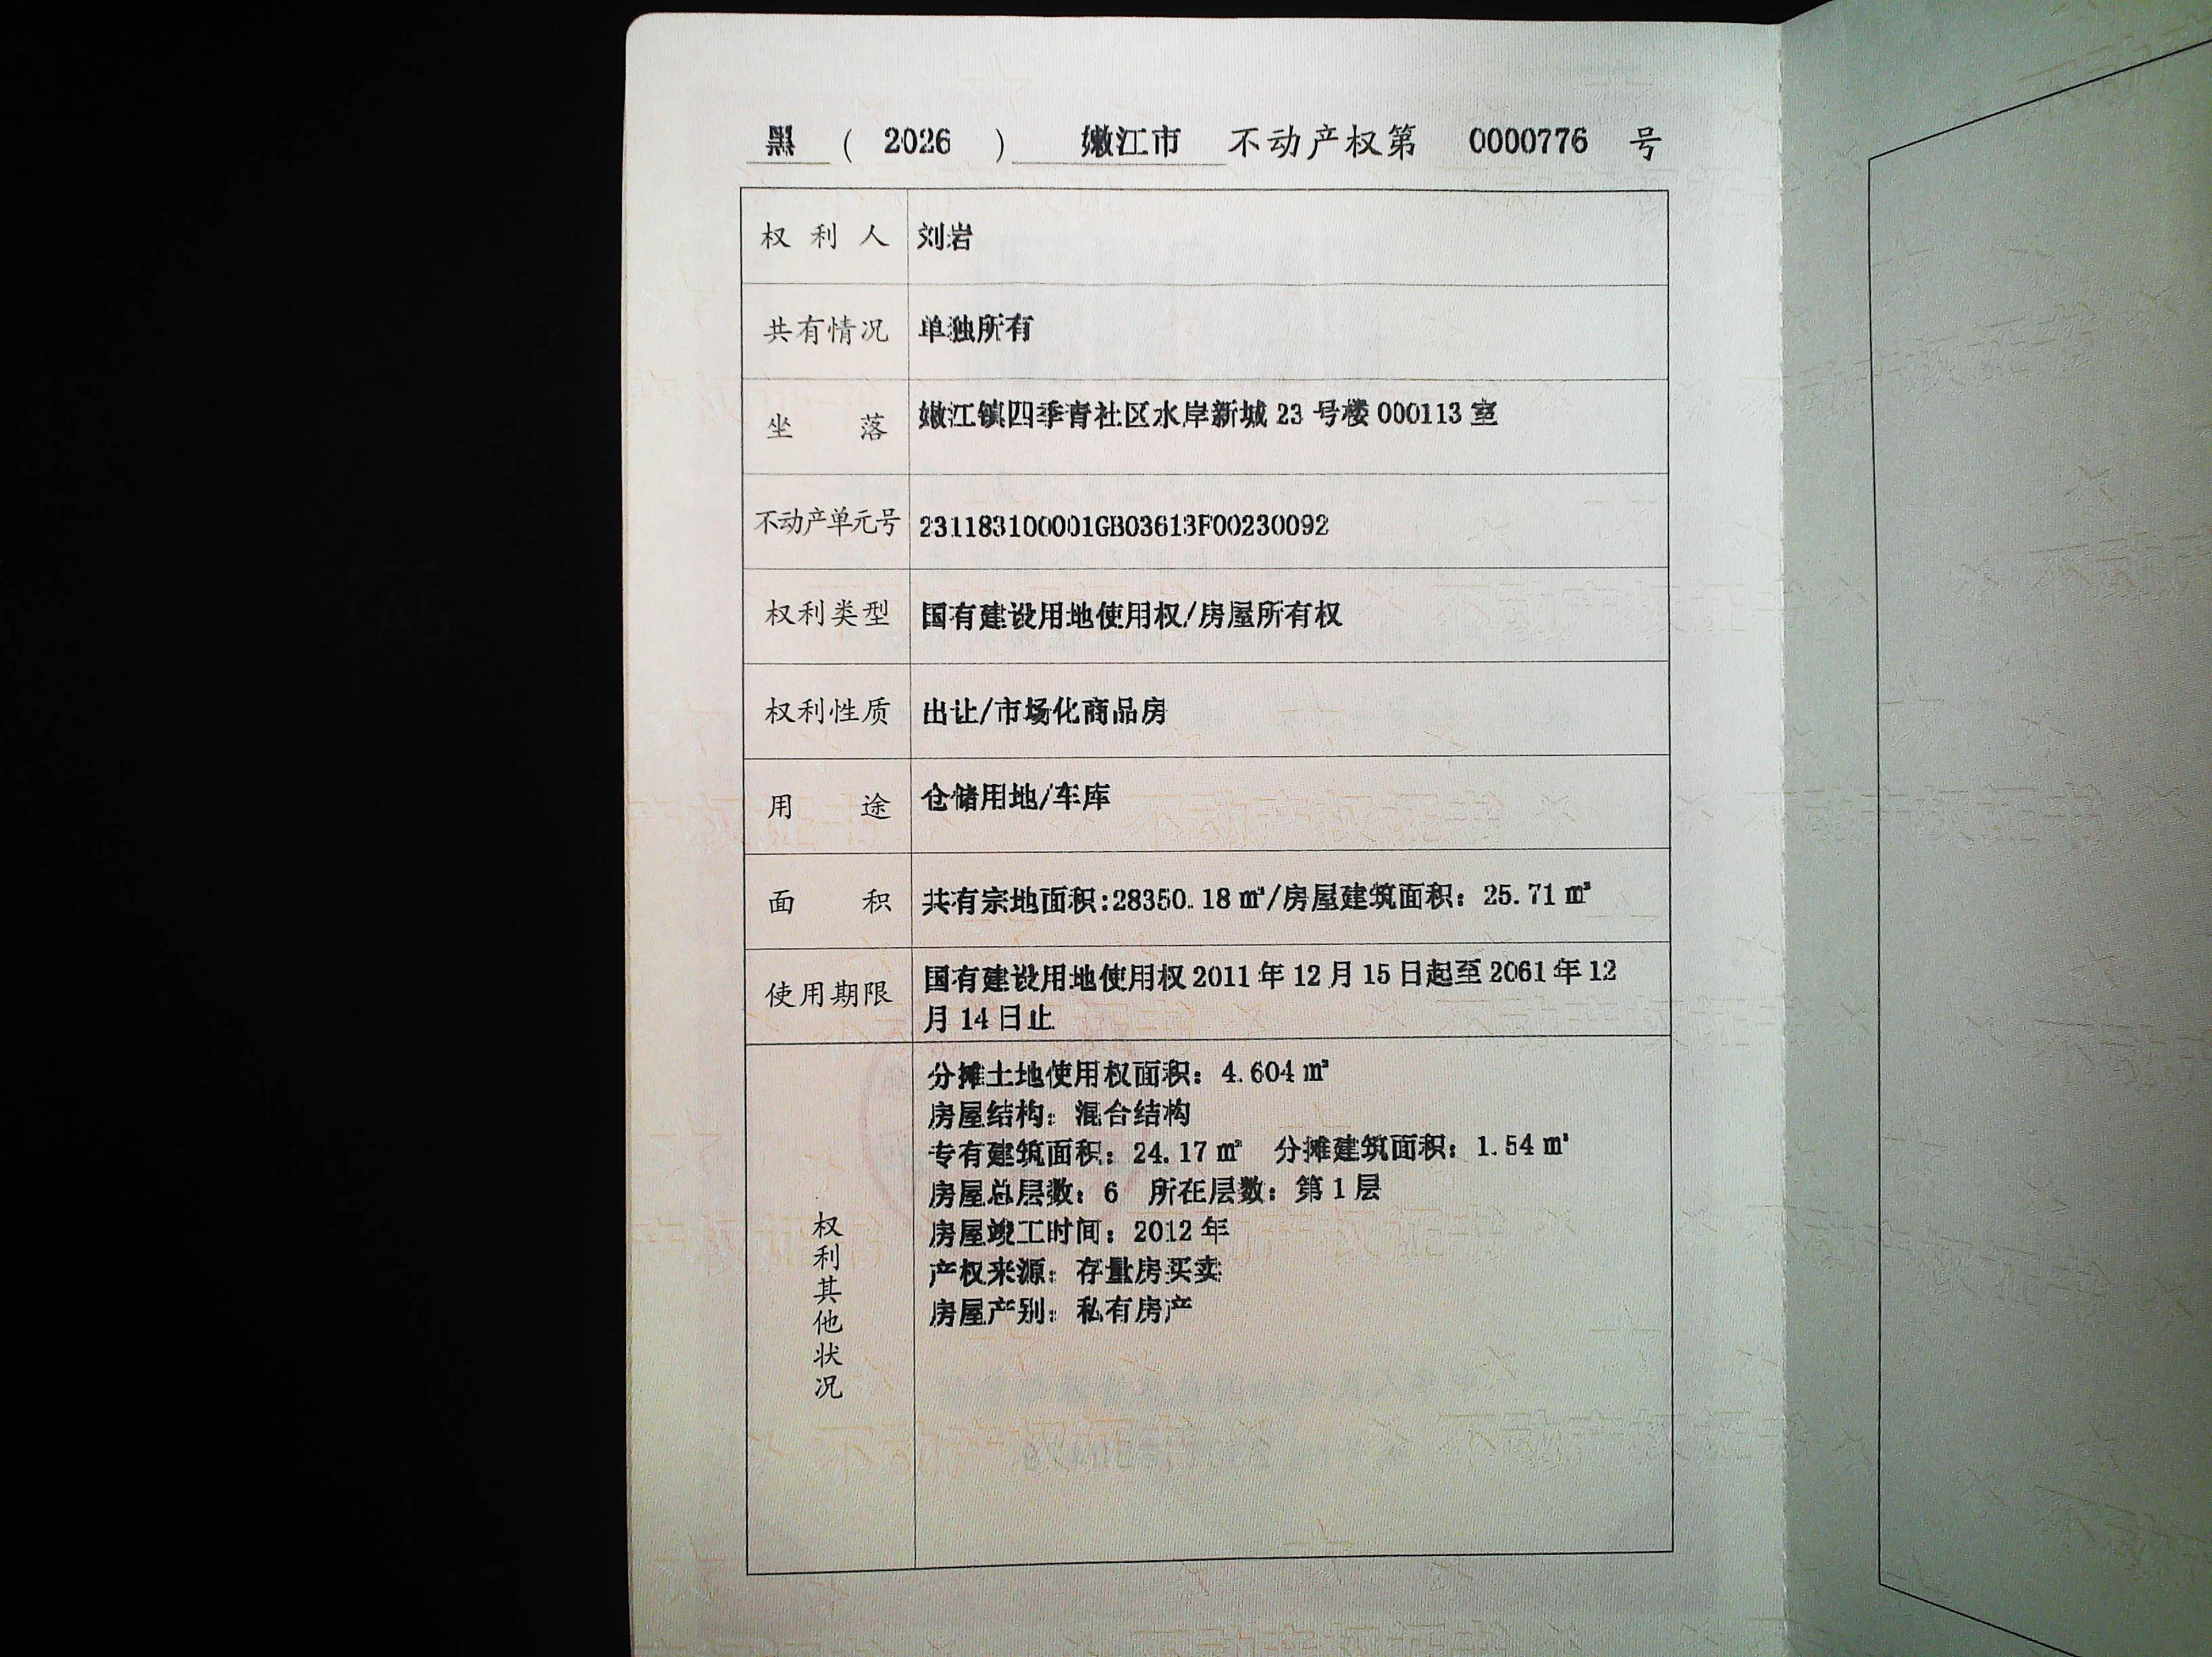 黑 ( 2026 ) 嫩江市 不动产权第 0000776 号
权利人 刘岩
共有情况 单独所有
坐落 嫩江镇四季青社区水岸新城 23 号楼 000113 室
不动产单元号 231183100001GB03613F00230092
权利类型 国有建设用地使用权/房屋所有权
权利性质 出让/市场化商品房
用途 仓储用地/车库
面积 共有宗地面积:28350.18 ㎡/房屋建筑面积: 25.71 ㎡
使用期限 国有建设用地使用权 2011 年 12 月 15 日起至 2061 年 12
月 14 日止
权利其他状况
分摊土地使用权面积: 4.604 ㎡
房屋结构: 混合结构
专有建筑面积: 24.17 ㎡ 分摊建筑面积: 1.54 ㎡
房屋总层数: 6 所在层数: 第 1 层
房屋竣工时间: 2012 年
产权来源: 存量房买卖
房屋产别: 私有房产